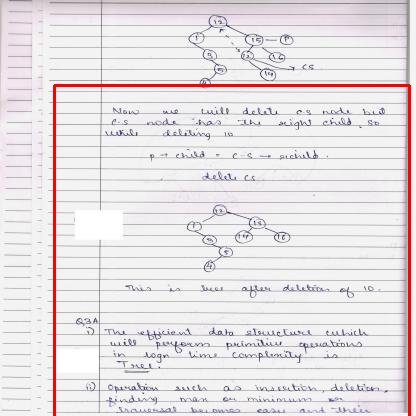 12
1 15 P
9 12 16
5 CS
4 14
Now we will delete c.s node but
c.s node has the right child. So
while deleting 10
p → child = c.s → rchild.
delete cs.
12
1 15
9 14 16
5
4
This is tree after deletion of 10.
Q3A
i) The efficient data structure which
will perform primitive operations
in logn time complexity is
Tree.
ii) Operation such as insertion, deletion,
finding max or minimum or
traversal becomes easy and their